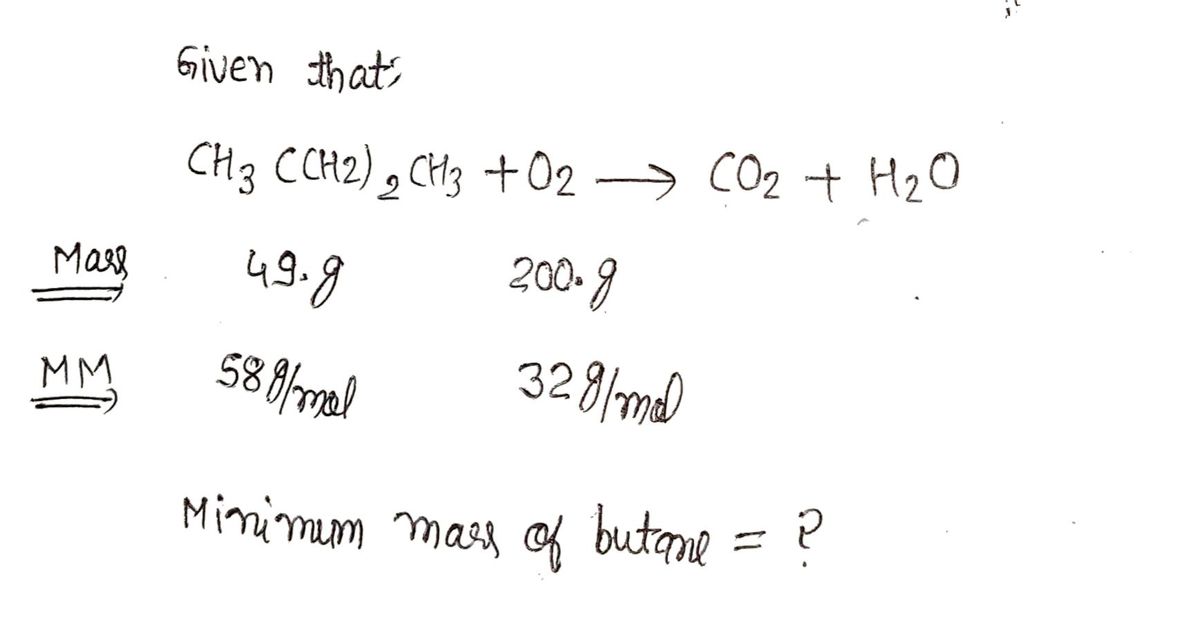 Given that:
CH3 C(H2)2 CH3 + O2 → CO2 + H2O
Mass 49.g 200.g
MM 58g/mol 32g/mol
Minimum mass of butane = ?